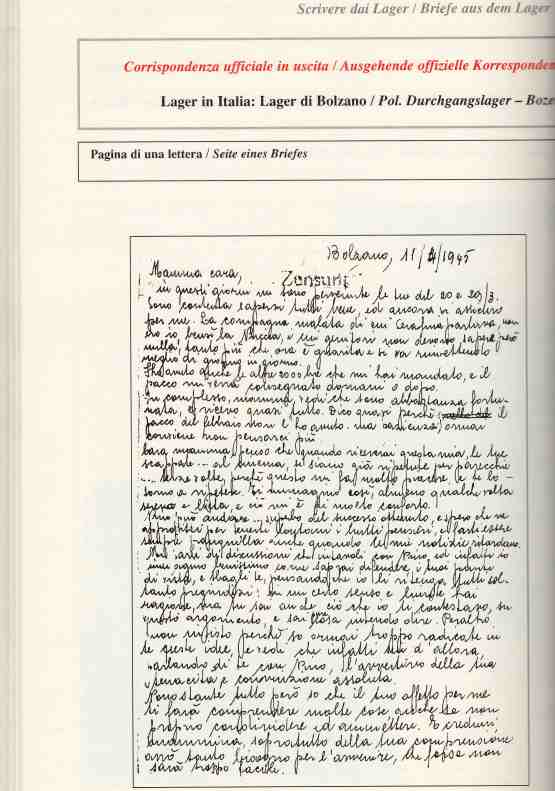 Scrivere dai Lager / Briefe aus dem Lager
Corrispondenza ufficiale in uscita / Ausgehende offizielle Korresponden
Lager in Italia: Lager di Bolzano / Pol. Durchgangslager – Boze
Pagina di una lettera / Seite eines Briefes
Bolzano, 11/4/1945
Mamma cara,
Zensurt
in questi giorni mi sono pervenute le tue del 20 e 29/3.
Sono contenta sapervi tutti bene, ed ancora vi assicuro
per me. La compagna malata di cui Serafina parlava, non
ero io bensì la Buccia, i cui genitori non devono sapere però
nulla, tanto più che ora è guarita e si va rimettendo
meglio di giorno in giorno.
anche le altre 2000 lire che mi hai mandato, e il
pacco mi verrà consegnato domani o dopo.
In complesso, mamma, vedi che sono abbastanza fortu-
nata, e ricevo quasi tutto. Dico quasi perchè il
pacco del febbraio non l'ho avuto. Ma pazienza, ormai
conviene non pensarci più.
Cara mamma, penso che quando riceverai questa mia, le tue
scappate ... al cinema, si siano già ripetute per parecchie
... altre volte, perchè questo mi fa molto piacere, e te lo
torno a ripetere. Ti immagino così, almeno qualche volta
serena e lieta, e ciò mi è di molto conforto.
Pino può andare superbo del successo ottenuto, e spero che ne
approfitti per tenerti lontani i brutti pensieri, e farti essere
sempre tranquilla anche quando le mie notizie ritardano.
discussioni che intavoli con Pino, ed infatti io
come sappiai difendere i tuoi punti
di vista, e sbagli te, pensando che io li ritenga tutti sol-
tanto pregiudizi! In un certo senso e hai
ragione, ma tu sai anche ciò che io ti contestavo, su
questo argomento, e sai cosa intendo dire. Peraltro
non insisto perchè so ormai troppo radicate in
te queste idee, e vedi che infatti fin d'allora,
parlando di te con Pino, l'avvertivo della tua
tenacità e convinzione assoluta.
Nonostante tutto però so che il tuo affetto per me
ti farà comprendere molte cose anche se non
proprio condividere ed ammettere. E credimi
mammina, soprattutto della tua comprensione
avrò tanto bisogno per l'avvenire, che forse non
sarà troppo facile.